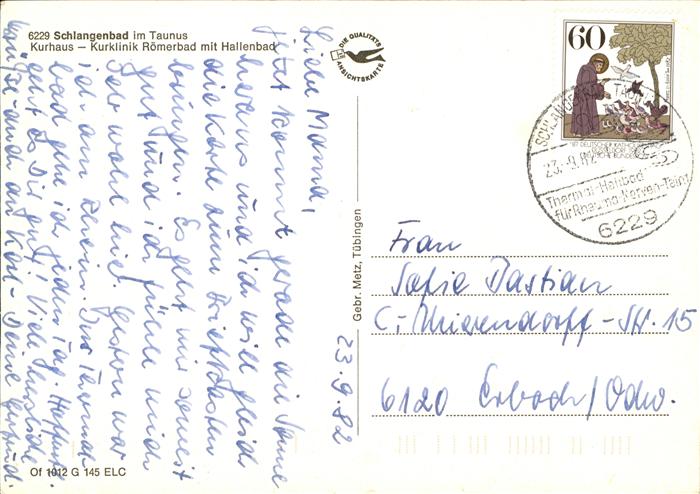 6229 Schlangenbad im Taunus
Kurhaus – Kurklinik Römerbad mit Hallenbad
DIE QUALITÄTS
ANSICHTSKARTE
60
SCHLANGENBAD
23.-9.82
Thermal-Heilbad
für Rheuma Nerven-Tein
6229
23.9.82
Liebe Mama,
jetzt kommt gerade die Sonne
heraus und ich will gleich
die Karte zum Briefkasten
bringen. Es geht mir soweit
gut und ich fühle mich
sehr wohl hier. Gestern war
ich am Rhein. Ins Thermal
bad gehe ich jeden Tag. Hoffentl.
geht es Dir gut! Viele herzliche
Grüße auch an Karl - Deine Gertrud
Gebr. Metz, Tübingen
Frau
Sofie Bastian
C.-Mierendorff-Str. 15
6120 Erbach/Odw.
Of 1012 G 145 ELC